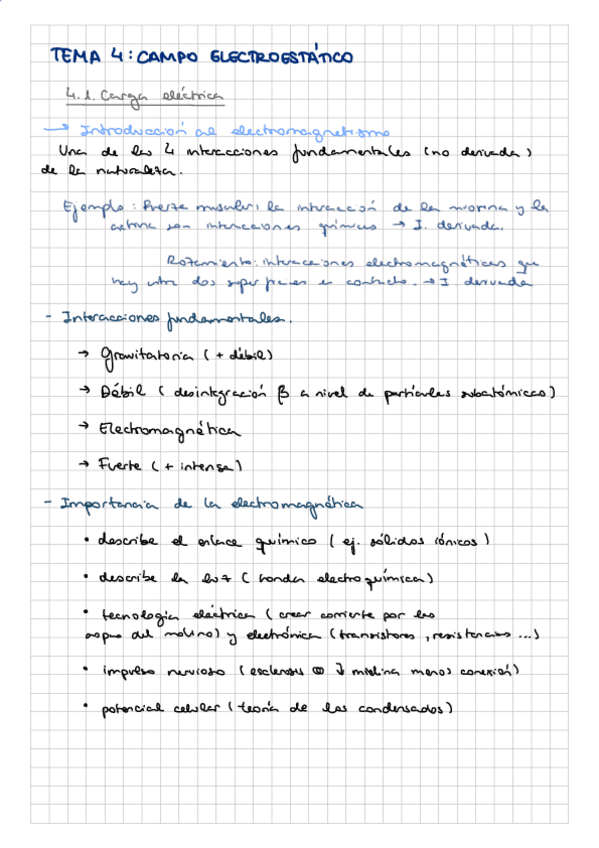 TEMA 4: CAMPO ELECTROESTÁTICO
4.1. Carga eléctrica
→ Introducción al electromagnetismo
Una de las 4 interacciones fundamentales (no derivada)
de la naturaleza.
Ejemplo: Fuerza muscular: la interacción de la miosina y la
actina son interacciones químicas → I. derivada.
Rozamiento: interacciones electromagnéticas que
hay entre dos superficies en contacto. → I. derivada
- Interacciones fundamentales.
→ Gravitatoria (+ débil)
→ Débil (desintegración β a nivel de partículas subatómicas)
→ Electromagnética
→ Fuerte (+ intensa)
- Importancia de la electromagnética
• describe el enlace químico (ej. sólidos iónicos)
• describe la luz (honda electroquímica)
• tecnología eléctrica (crear corriente por las
aspas del molino) y electrónica (transistores, resistencias ...)
• impulso nervioso (esclerosis ↓ mielina menos conexión)
• potencial celular (teoría de los condensados)